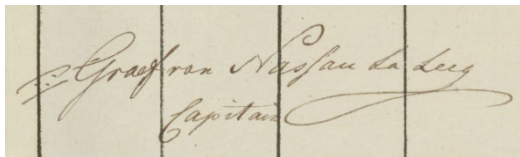 Graef van Nassau La Lecq
Capitain